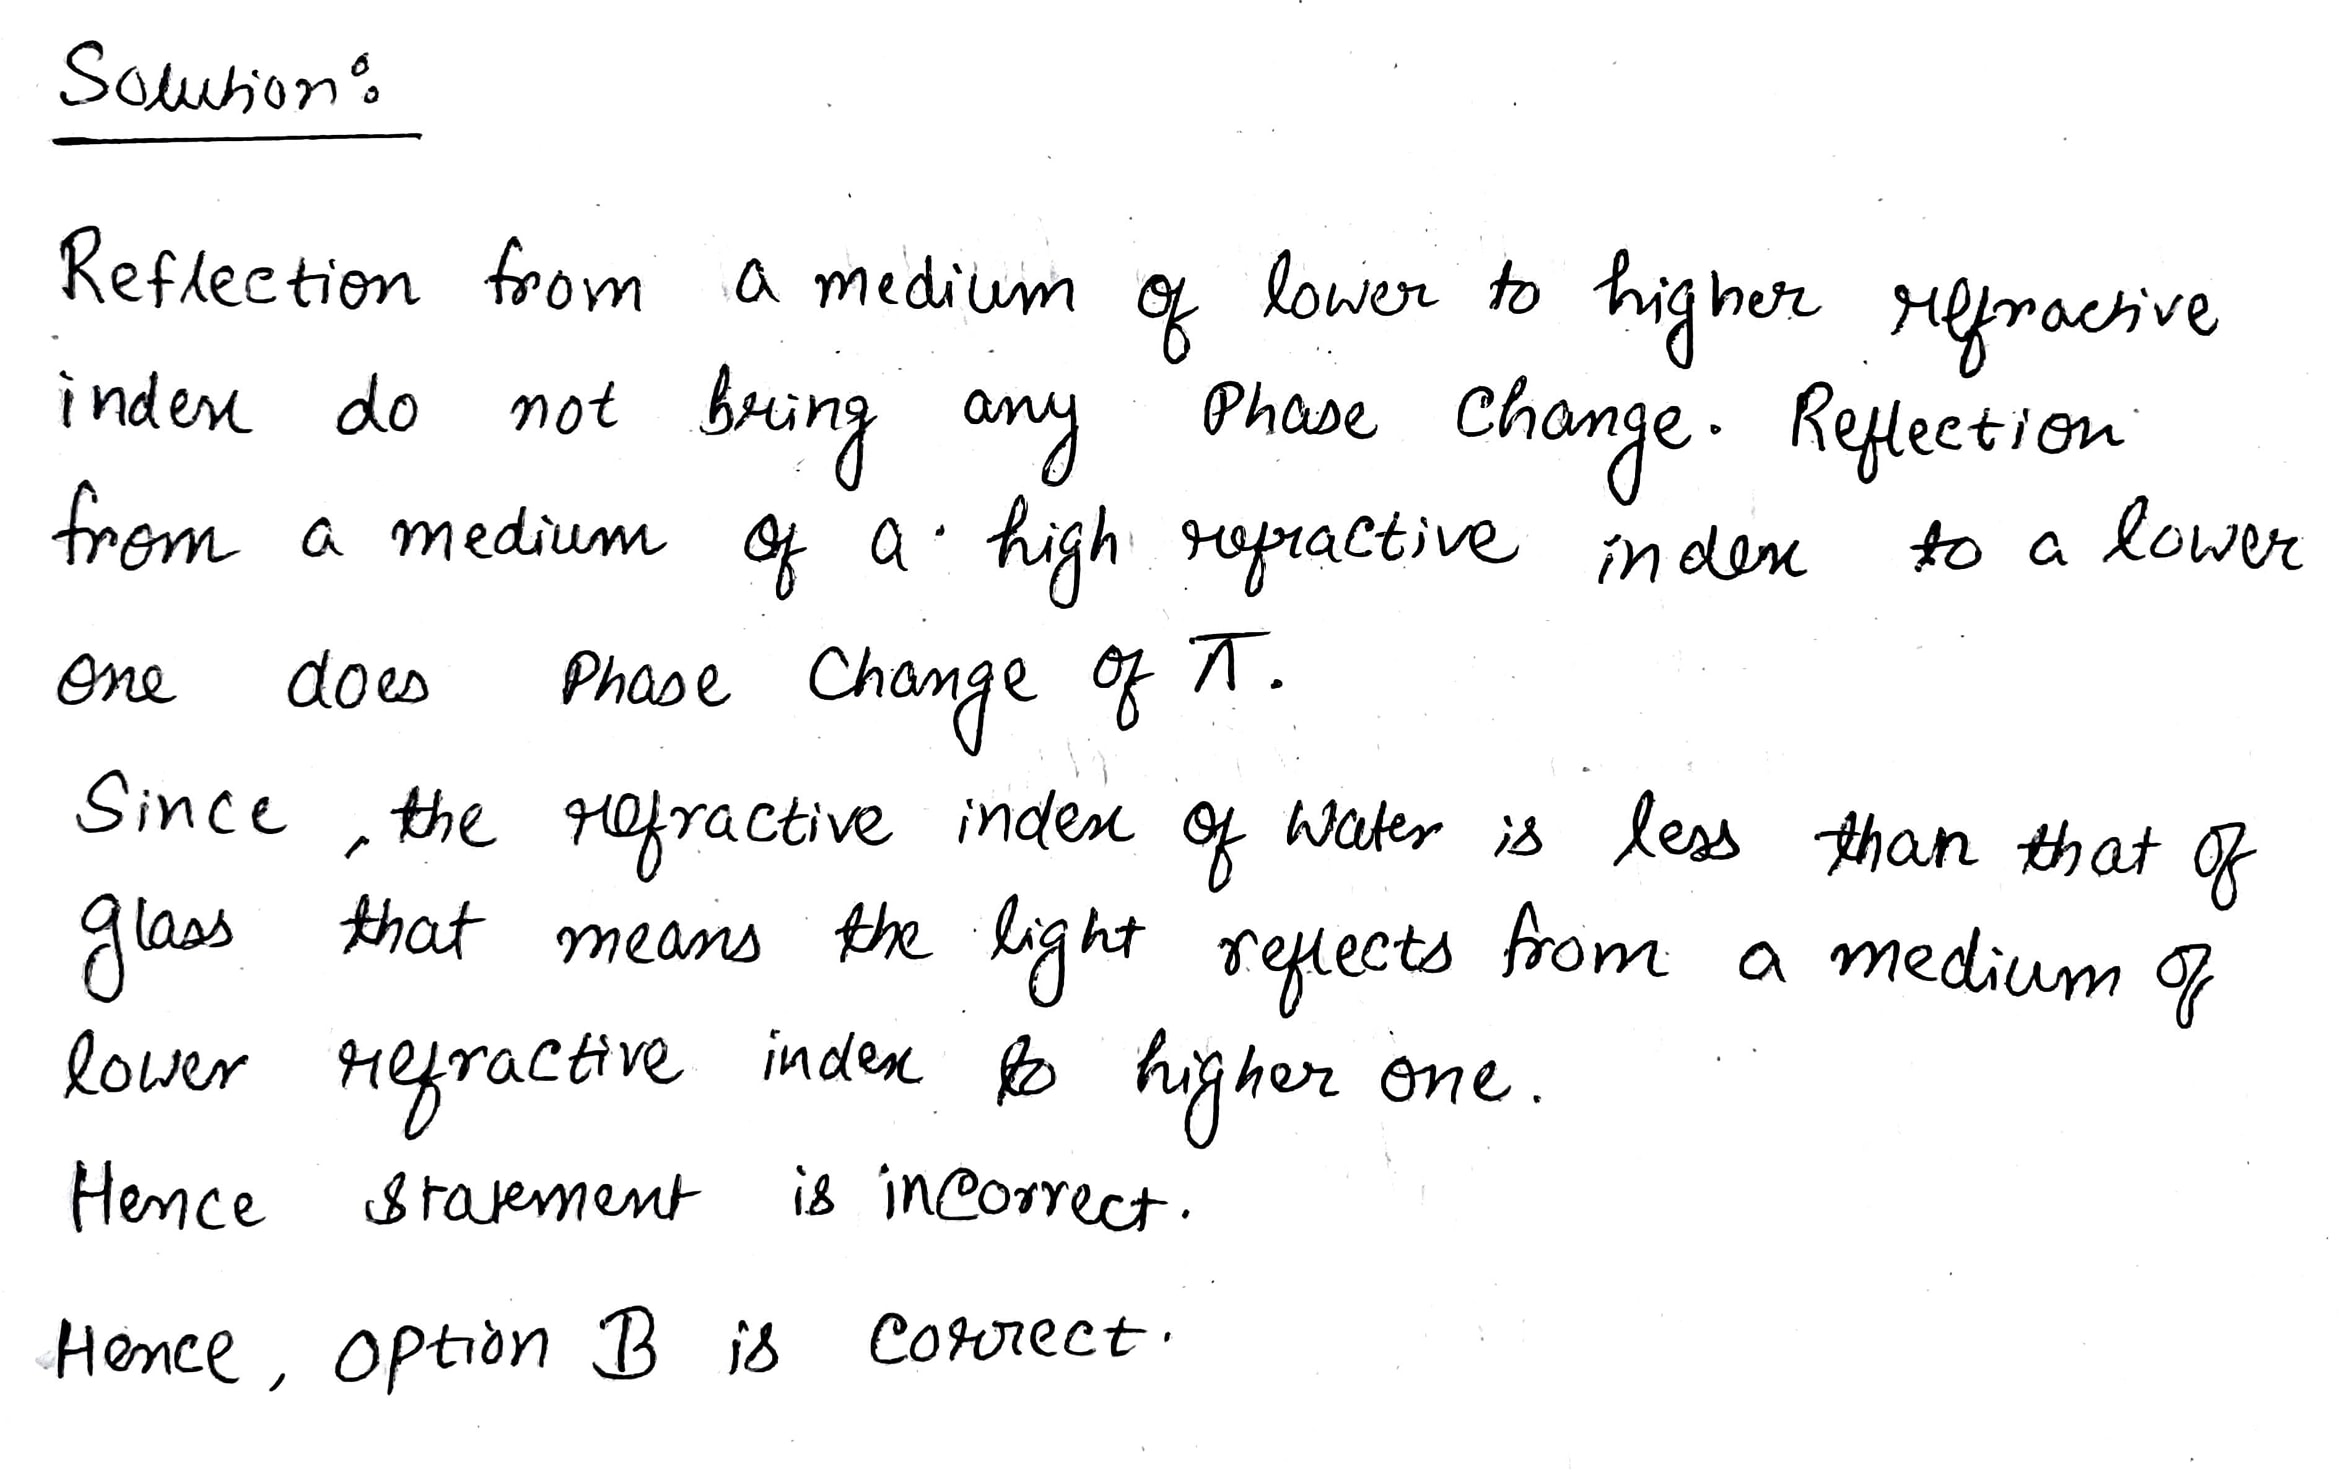 Solution:
Reflection from a medium of lower to higher refractive
index do not bring any Phase Change. Reflection
from a medium of a high refractive index to a lower
one does Phase Change of π.
Since, the refractive index of water is less than that of
glass that means the light reflects from a medium of
lower refractive index to higher one.
Hence statement is incorrect.
Hence, option B is correct.